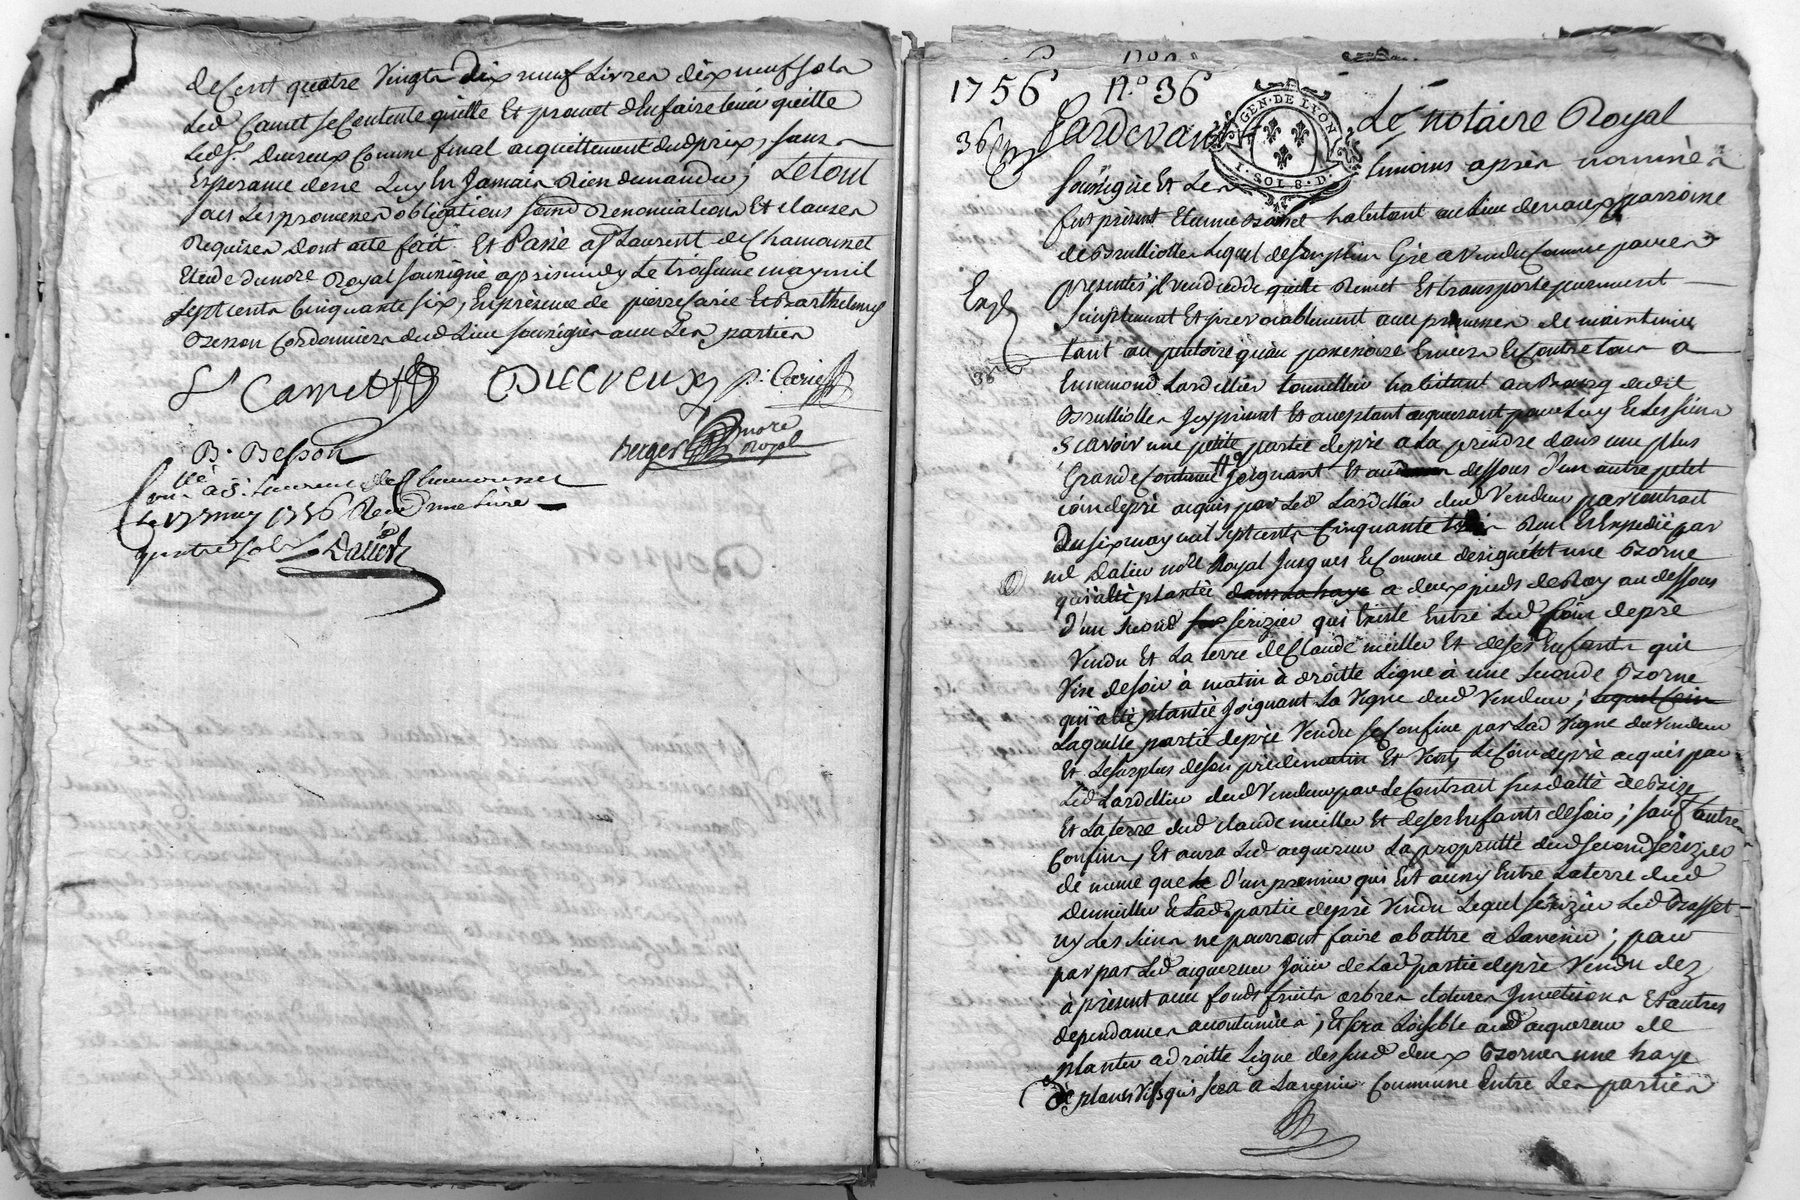 de Cent quatre Vingts dix neuf Livres dix neuf sols
Led Carret se Contente quitte Et promet d'En faire tenir quitte
Led Sr. Ducreux Comme final acquittement dud prix, sans
Esperance de ne Luy En Jamais Rien demander; Le tout
avec Les promesses obligations Renonciations Et clauses
Requises dont acte fait Et Passé a St Laurent de Chamousset
Etude du notre Royal soussigné apres midy Le troisieme may mil
sept cents Cinquante six, En présence de pierre Carie Et Barthelemy
Besson Cordonniers dud Lieu soussignés avec Les parties
Carret
Ducreux
p. Carie
B. Besson
Berger notre Royal
Conllé a St Laurent de Chamousset
le 17 may 1756 Recu une livre
quatre sols Dalier
1756 N.o 36
GEN. DE LYON
1. SOL 8. D.
36 Pardevant Le notaire Royal
soussigné Et Les temoins après nommés
fut présent Etienne Brasset habitant au lieu de vaux parroisse
de Brulliolles Lequel de son plein Gré a Vendu Comme par ces
presentes il vend cedde quitte Remet Et transporte purement
Simplement Et yrevocablement avec promesse de maintenir
tant au petitoire qu'au possessoire Envers Et Contre tous a
Ennemond Lardellier tonnellier habitant au Bourg dudit
Brulliolles Jcy présent Et aceptant acquerant pour Luy Et Les siens
Scavoir une petite partie de pré a La prendre dans une plus
Grande Contenue Joignant Et au dessous d'un autre petit
coin de pré acquis par Led Lardellier dud Vendeur par contrat
du six may mil sept cents Cinquante trois Recu Et Expedié par
me Dalier nore Royal Jusques Et Comme designent une Borne
qui a été plantée dans la haye a deux pieds de Roy au dessous
d'un second serizier qui Existe Entre Led Coin de pré
Vendu Et La terre de Claude meiller Et de ses Enfants qui
Vise de soir à matin à droitte Ligne à une seconde Borne
qui a été plantée Joignant La Vigne dud Vendeur; Lequel Coin
Laquelle partie de pré Vendu se Confine par Lad Vigne du Vendeur
Et Le surplus de son pré de matin Et Vent, Le Coin de pré acquis par
Led Lardellier dud Vendeur par Le Contrat sus datté de Bize
Et La terre dud Claude meiller Et de ses Enfants de soir; sauf autres
Confins, Et aura Led acquereur La proprietté dud second serizier
de meme que Le d'un premier qui Est aussy Entre La terre dud
meiller Et Lad partie de pré Vendu Lequel serizier Led Brasset
ny Les siens ne pourront faire abattre à L'avenir; pour
par par Led acquereur Jouir de Lad partie de pré Vendu dez
à présent avec fonds fruits arbres clotures Et autres
dependances accoutumées; Et sera Loisible aud acquereur de
planter a droitte Ligne des susd deux Bornes une haye
de plans Vifs qui sera a L'avenir Commune Entre Les parties